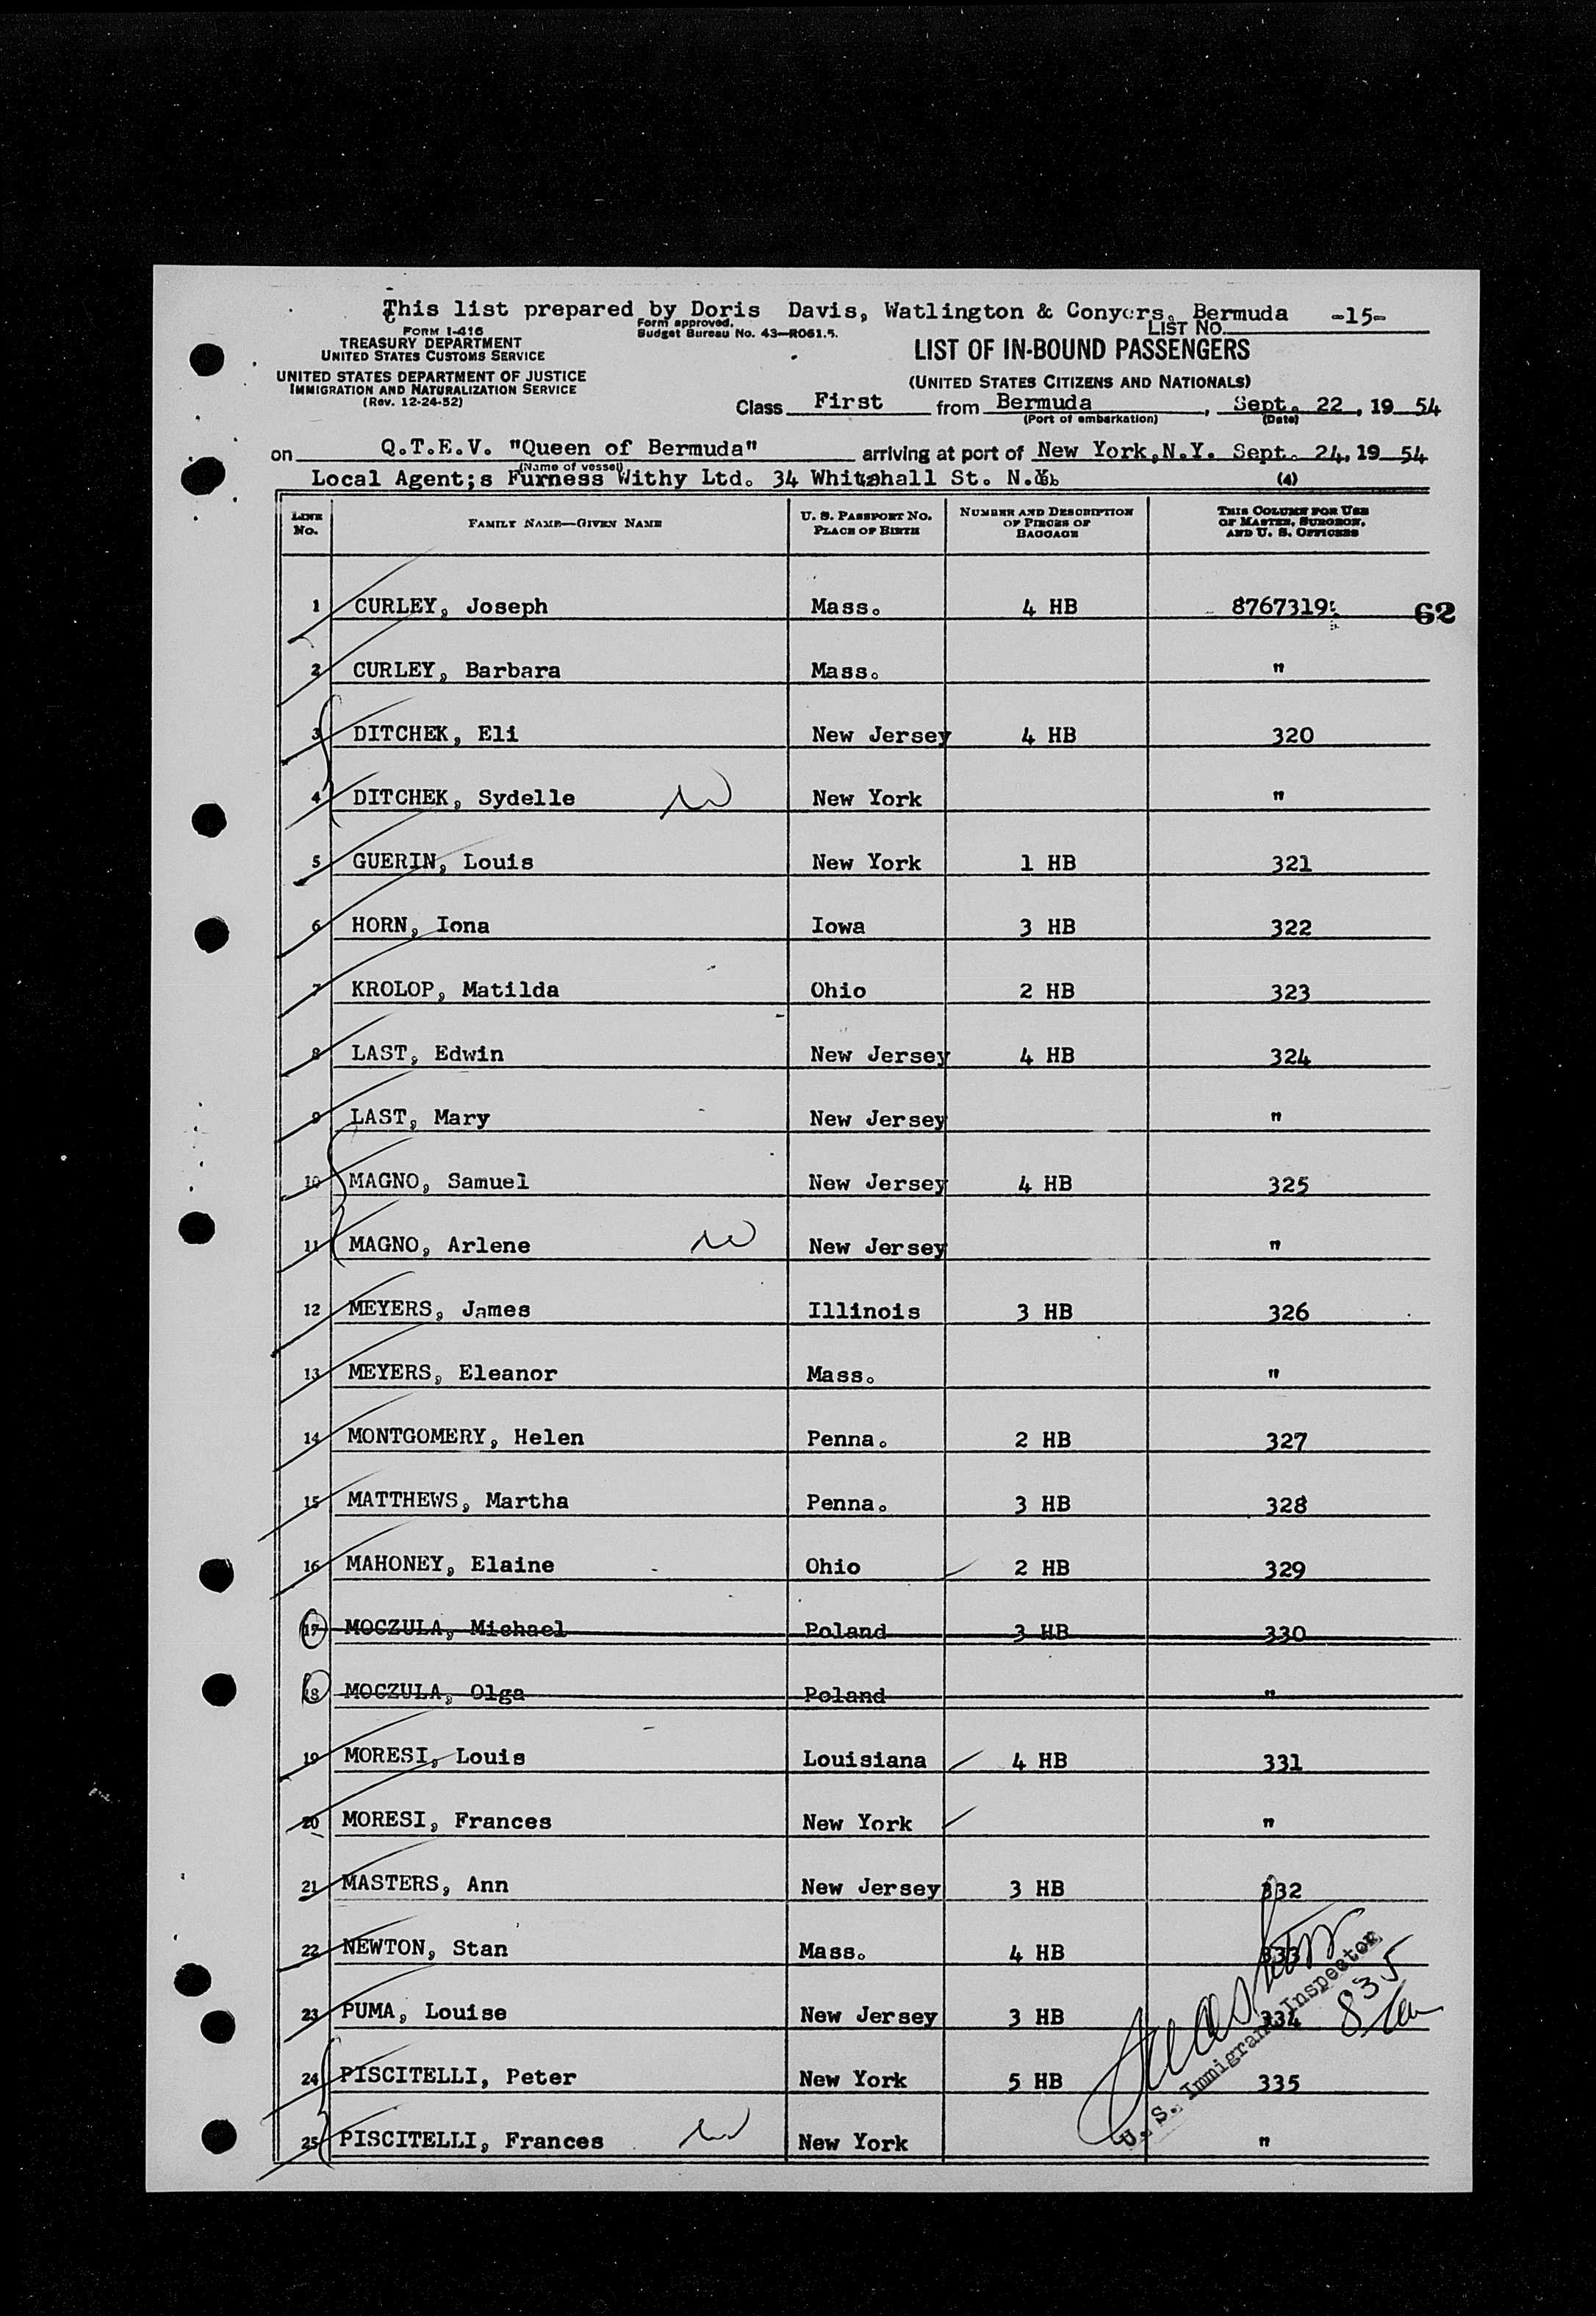 This list prepared by Doris Davis, Watlington & Conyers, Bermuda -15-
FORM I-416
TREASURY DEPARTMENT
UNITED STATES CUSTOMS SERVICE
Form approved.
Budget Bureau No. 43—R061.5.
LIST No.
LIST OF IN-BOUND PASSENGERS
UNITED STATES DEPARTMENT OF JUSTICE
IMMIGRATION AND NATURALIZATION SERVICE
(Rev. 12-24-52)
(UNITED STATES CITIZENS AND NATIONALS)
Class First from Bermuda, Sept. 22, 19 54
(Port of embarkation) (Date)
on Q.T.E.V. "Queen of Bermuda" arriving at port of New York, N.Y. Sept. 24, 19 54
(Name of vessel)
Local Agent;s Furness Withy Ltd. 34 Whitehall St. N.Y.
(4)
LINE No. FAMILY NAME—GIVEN NAME U. S. PASSPORT NO. PLACE OF BIRTH NUMBER AND DESCRIPTION OF PIECES OF BAGGAGE THIS COLUMN FOR USE OF MASTER, SURGEON, AND U. S. OFFICERS
1 CURLEY, Joseph Mass. 4 HB 8767319 62
2 CURLEY, Barbara Mass. "
3 DITCHEK, Eli New Jersey 4 HB 320
4 DITCHEK, Sydelle New York "
5 GUERIN, Louis New York 1 HB 321
6 HORN, Iona Iowa 3 HB 322
7 KROLOP, Matilda Ohio 2 HB 323
8 LAST, Edwin New Jersey 4 HB 324
9 LAST, Mary New Jersey "
10 MAGNO, Samuel New Jersey 4 HB 325
11 MAGNO, Arlene New Jersey "
12 MEYERS, James Illinois 3 HB 326
13 MEYERS, Eleanor Mass. "
14 MONTGOMERY, Helen Penna. 2 HB 327
15 MATTHEWS, Martha Penna. 3 HB 328
16 MAHONEY, Elaine Ohio 2 HB 329
17 MOCZULA, Michael Poland 3 HB 330
18 MOCZULA, Olga Poland "
19 MORESI, Louis Louisiana 4 HB 331
20 MORESI, Frances New York "
21 MASTERS, Ann New Jersey 3 HB 332
22 NEWTON, Stan Mass. 4 HB 333
23 PUMA, Louise New Jersey 3 HB 334
24 PISCITELLI, Peter New York 5 HB 335
25 PISCITELLI, Frances New York "
U. S. Immigrant Inspector
835